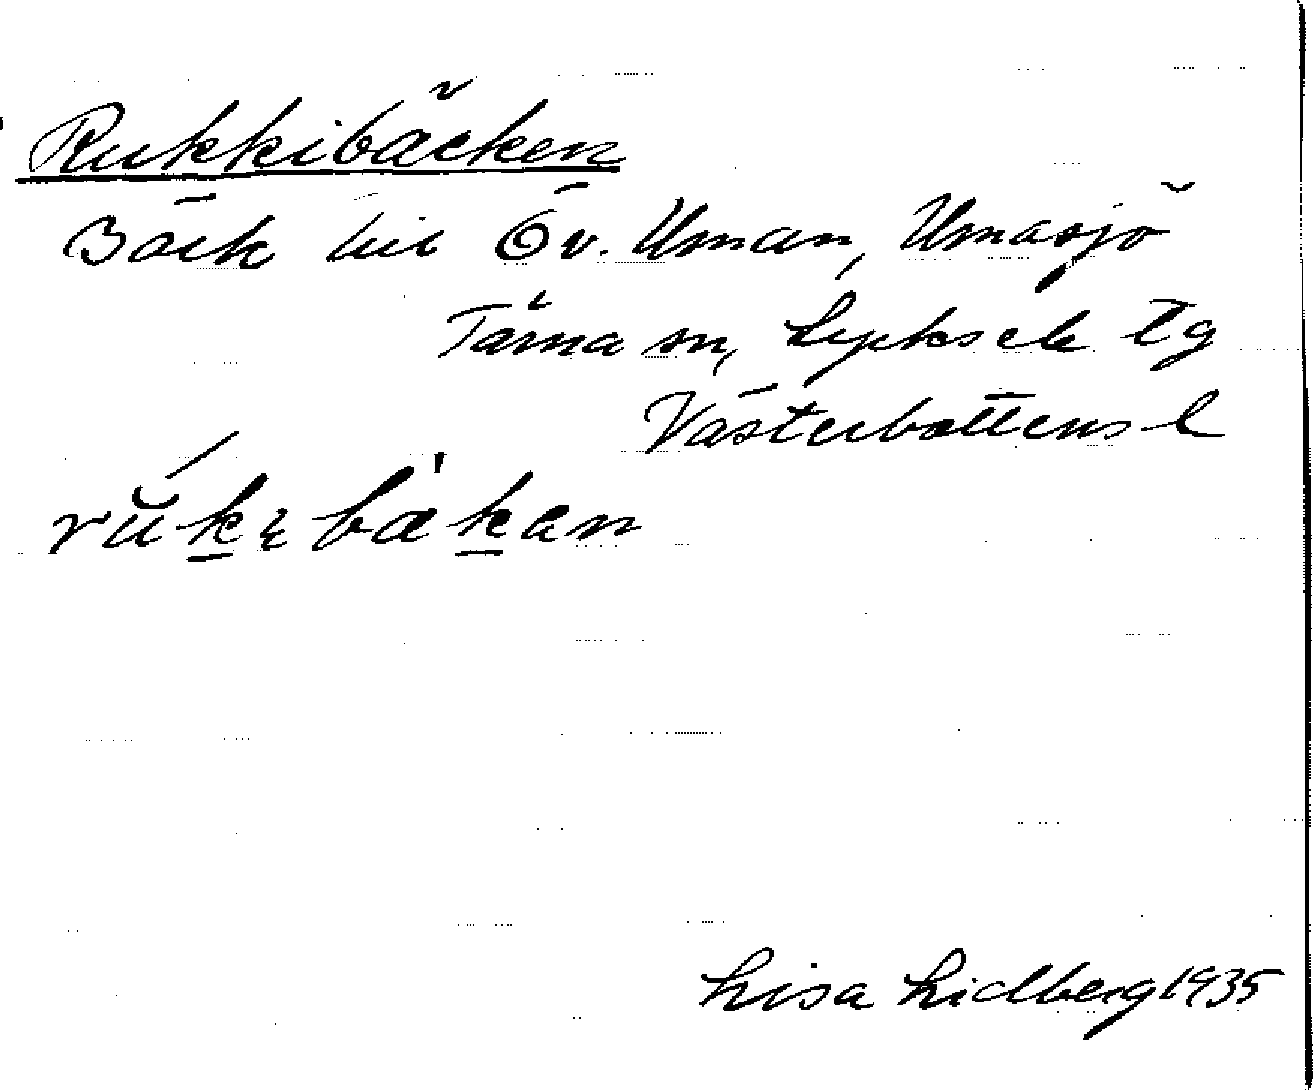 Rukkibäcken
Bäck till Öv. Uman, Umasjö
Tärna sn, Lycksele lg
Västerbottens l
Lisa Lidberg 1935